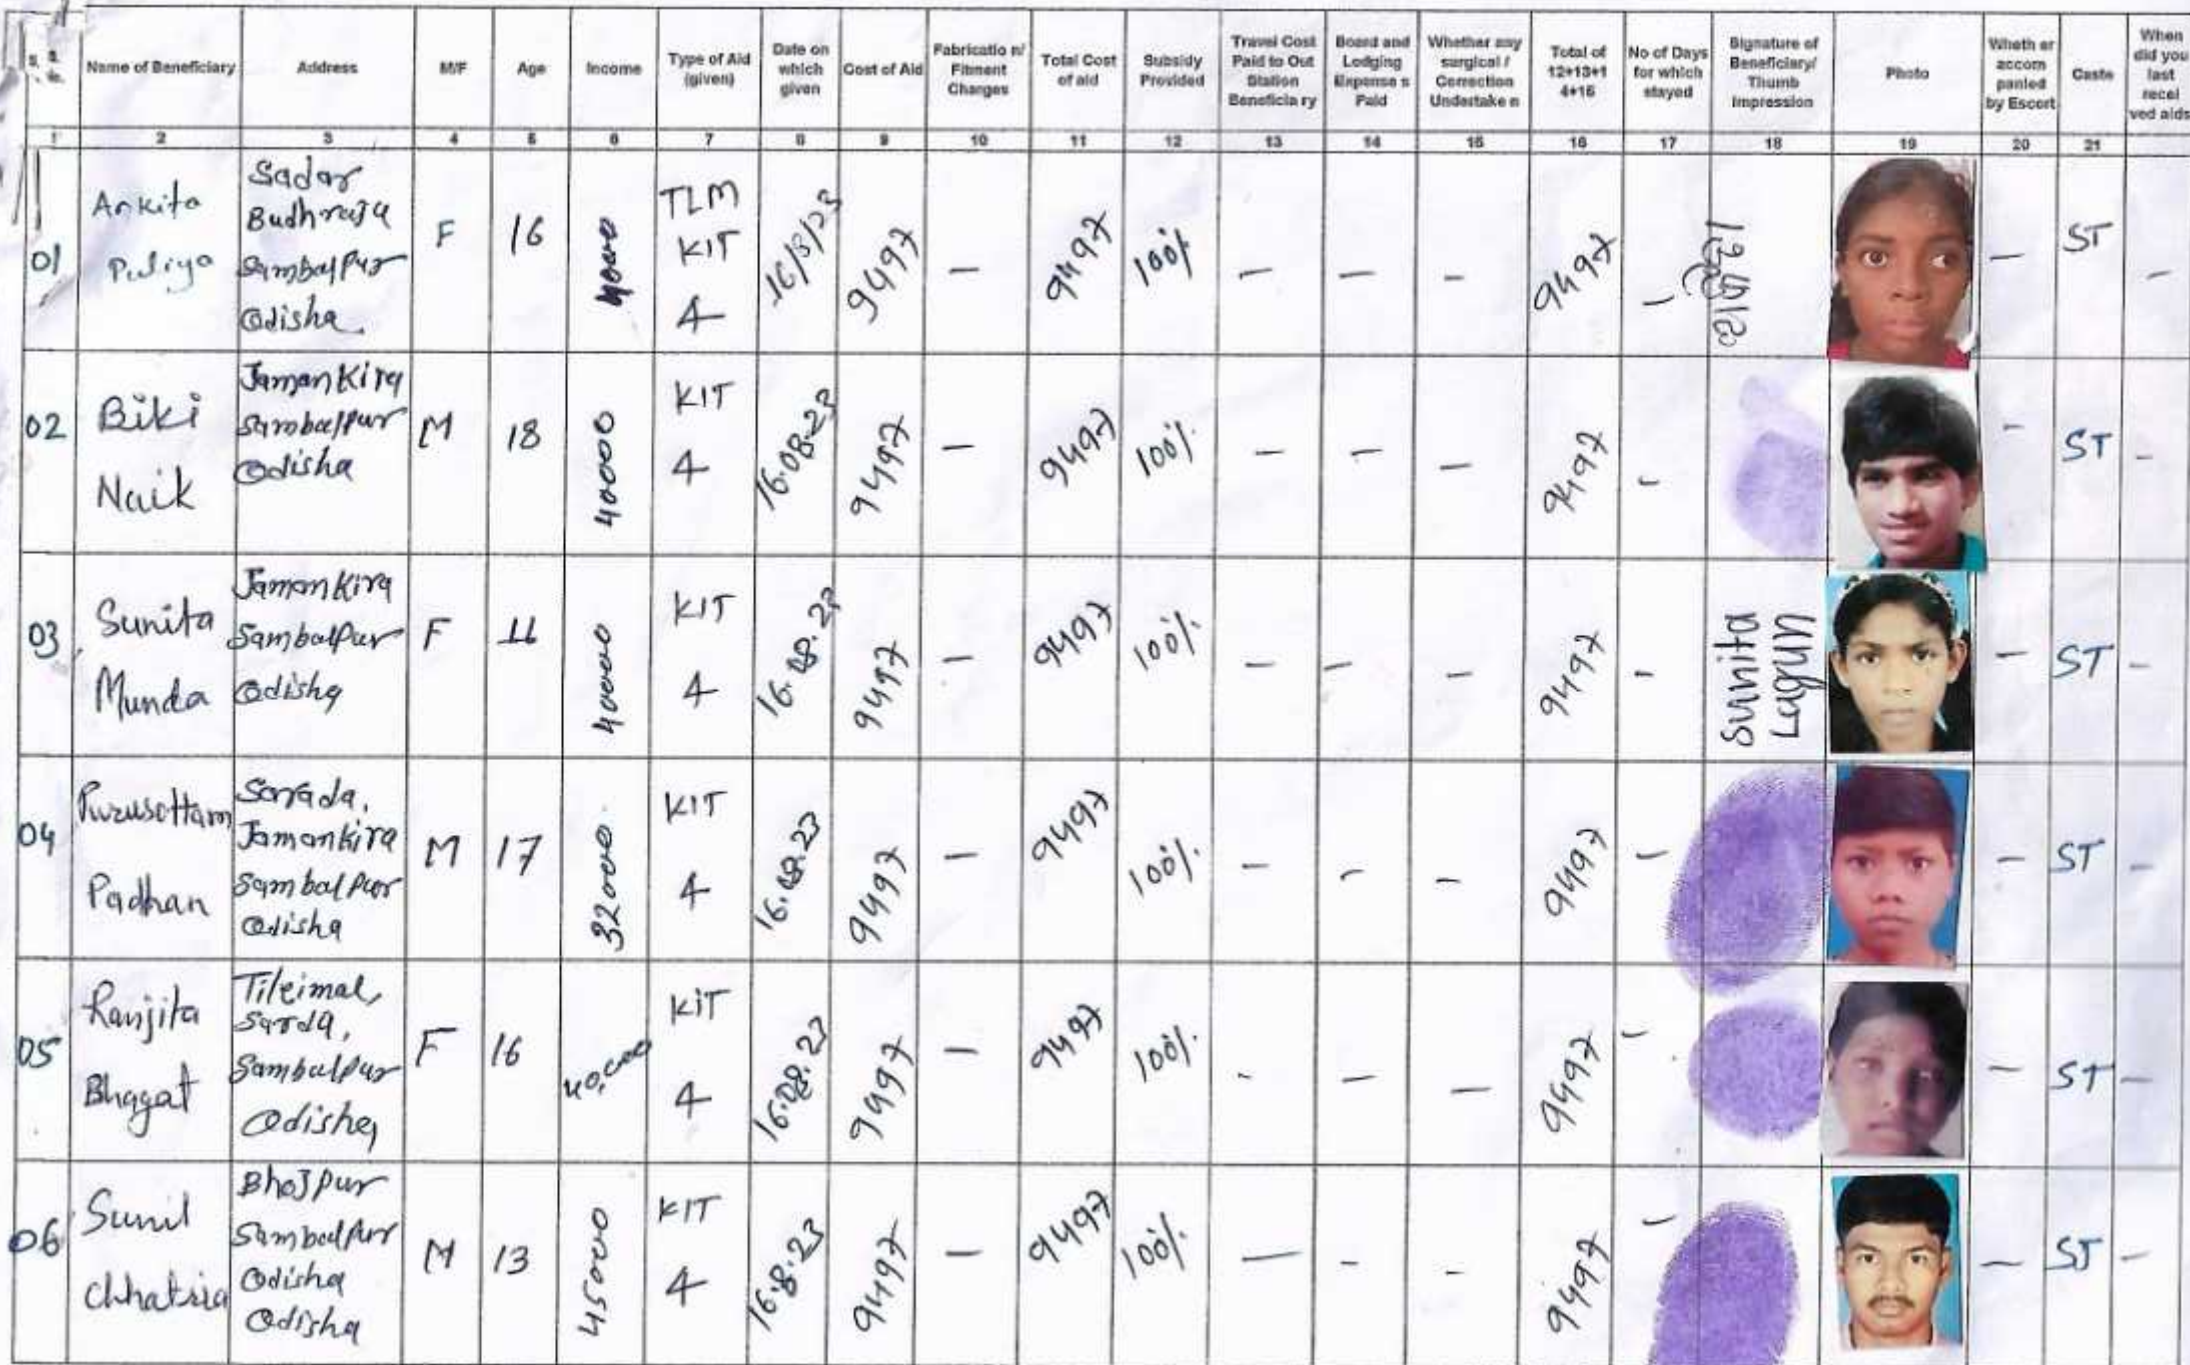 S. No.
Name of Beneficiary
Address
M/F
Age
Income
Type of Aid
(given)
Date on
which
given
Cost of Aid
Fabricatio n/
Fitment
Charges
Total Cost
of aid
Subsidy
Provided
Travel Cost
Paid to Out
Station
Beneficia ry
Board and
Lodging
Expense s
Paid
Whether any
surgical /
Correction
Undertake n
Total of
12+13+1
4+15
No of Days
for which
stayed
Signature of
Beneficiary/
Thumb
Impression
Photo
Wheth er
accom
panied
by Escort
Caste
When
did you
last
recei
ved aids
1 2 3 4 5 6 7 8 9 10 11 12 13 14 15 16 17 18 19 20 21
01
Ankita
Sadar
Budhraja
Sambalpur
Odisha
F
16
TLM
KIT
4
16/8/23
9497
—
9497
100%
—
—
—
9497
—
—
ST
—
02
Biki
Naik
Jamankira
Sambalpur
Odisha
M
18
40000
KIT
4
16.08.23
9497
—
9497
100%
—
—
—
9497
—
—
ST
—
03
Sunita
Munda
Jamankira
Sambalpur
Odisha
F
11
40000
KIT
4
16.08.23
9497
—
9497
100%
—
—
—
9497
—
Sunita
Lagun
—
ST
—
04
Purusottam
Padhan
Sarada,
Jamankira
Sambalpur
Odisha
M
17
32000
KIT
4
16.08.23
9497
—
9497
100%
—
—
—
9497
—
—
ST
—
05
Ranjita
Bhagat
Tileimal,
Sarda,
Sambalpur
Odisha
F
16
40,000
KIT
4
16.08.23
9497
—
9497
100%
-
—
—
9497
—
—
ST
—
06
Sunil
Chhatria
Bhojpur
Sambalpur
Odisha
Odisha
M
13
45000
KIT
4
16.8.23
9497
—
9497
100%
—
-
-
9497
—
—
ST
—